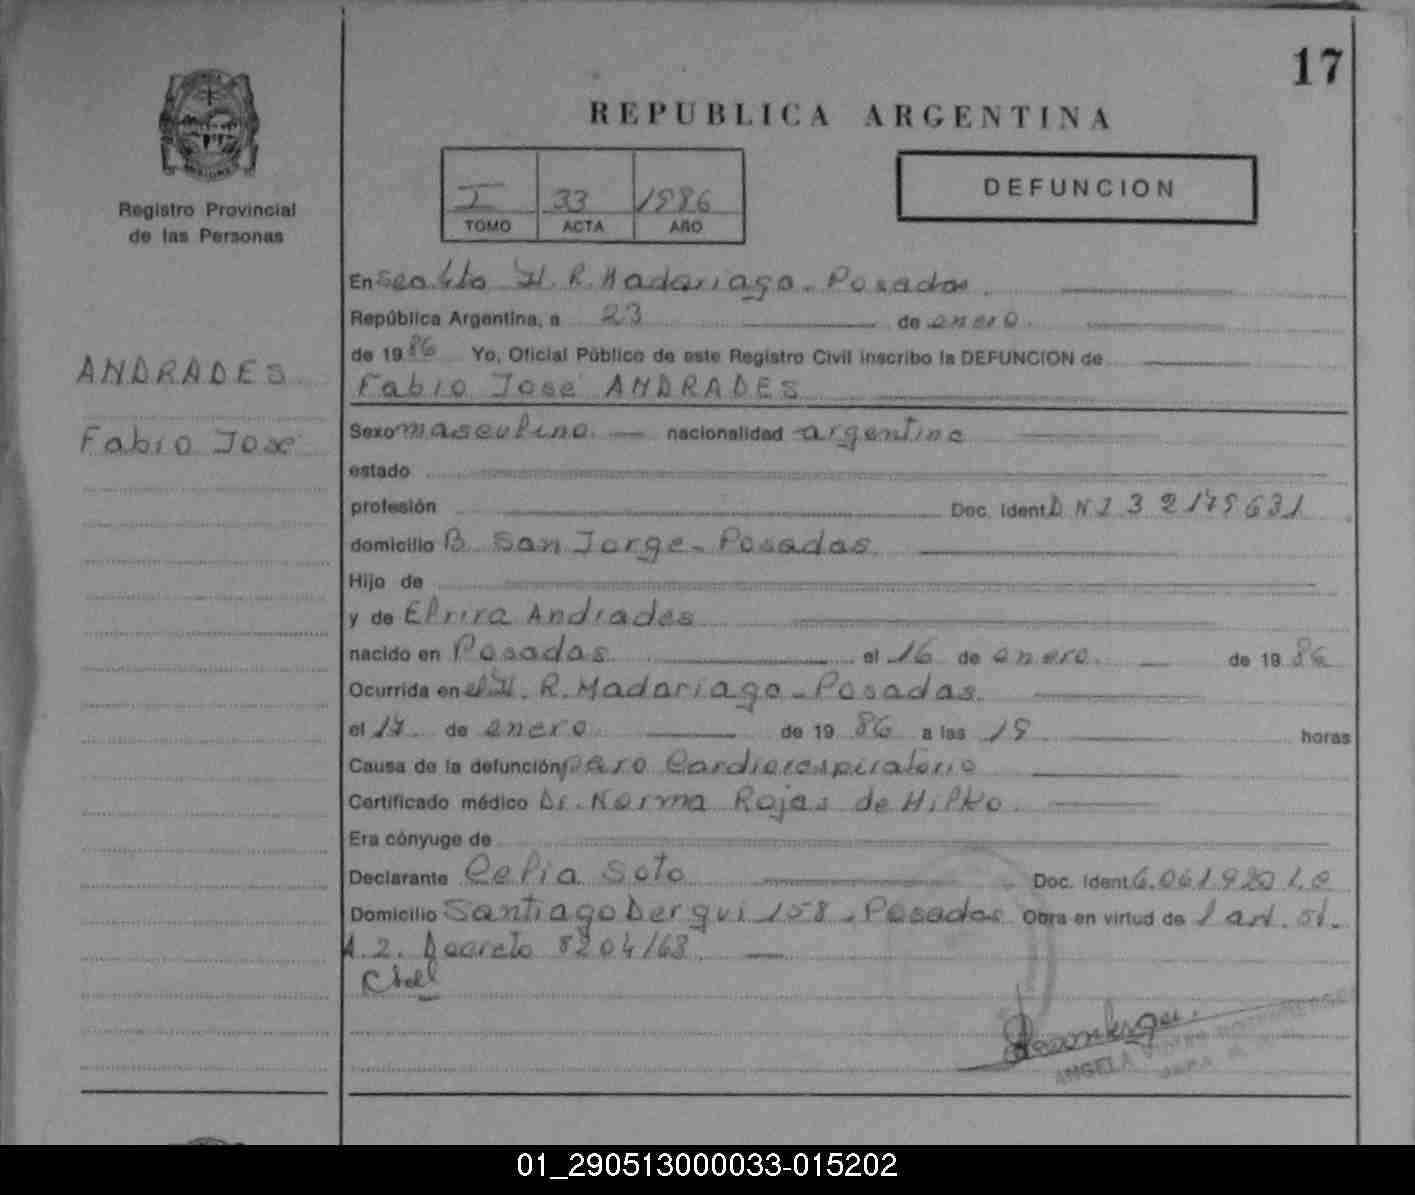 17
REPUBLICA ARGENTINA
I 33 1986
TOMO ACTA AÑO
DEFUNCION
Registro Provincial
de las Personas
ANDRADES
Fabio José
En H. R. Madariaga - Posadas
República Argentina, a 23 de enero
de 1986 Yo, Oficial Público de este Registro Civil inscribo la DEFUNCION de
Fabio José ANDRADES
Sexo masculino nacionalidad argentina
estado
profesión Doc. Ident. DNI
domicilio B San Jorge - Posadas
Hijo de
y de Andrades
nacido en Posadas el 16 de enero de 1986
Ocurrida en el H. R. Madariaga - Posadas
el 17 de enero de 1986 a las 19 horas
Causa de la defunción paro Cardiorespiratorio
Certificado médico Dr. Norma Rojas de
Era cónyuge de
Declarante Celia Soto Doc. Ident.
Domicilio Santiago Derqui 158 - Posadas Obra en virtud de
Decreto 8204/63
ANGELA
01_290513000033-015202